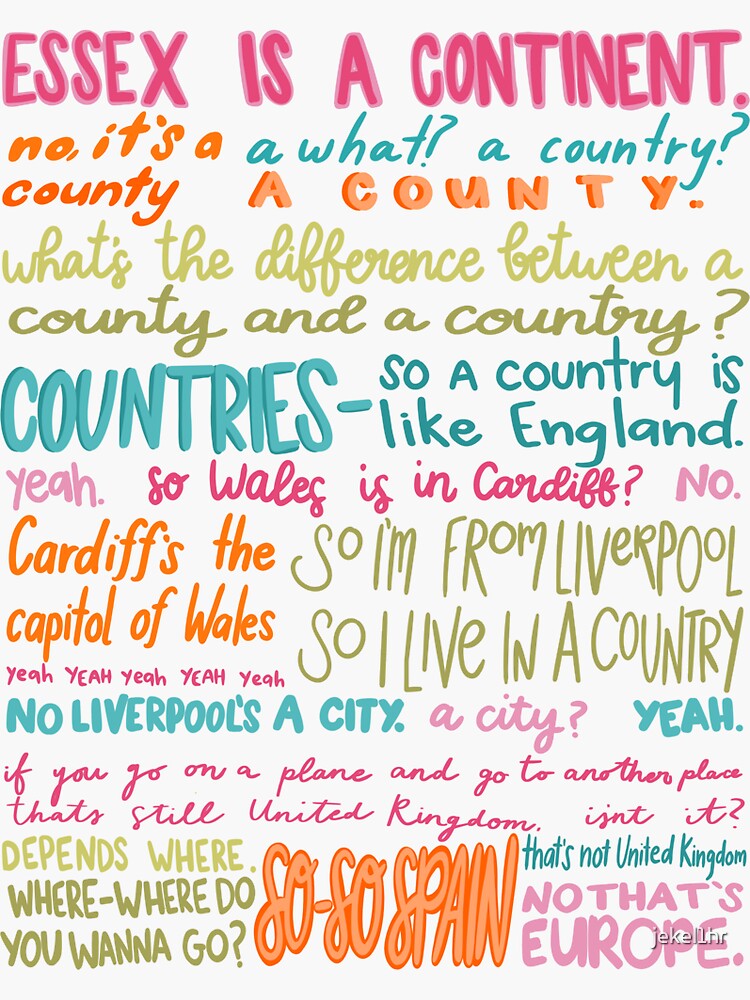 ESSEX IS A CONTINENT.
no, it's a
county
a what? a country?
A COUNTY.
what's the difference between a
county and a country?
COUNTRIES-
so A country is
like England.
yeah. so Wales is in Cardiff? NO.
Cardiff's the
capitol of Wales
yeah YEAH yeah YEAH yeah
SO I'M FROM LIVERPOOL
SO I LIVE IN A COUNTRY
NO LIVERPOOL'S A CITY. a city? YEAH.
if you go on a plane and go to another place
thats still United Kingdom, isnt it?
DEPENDS WHERE.
WHERE-WHERE DO
YOU WANNA GO?
SO-SO SPAIN
that's not United Kingdom
NO THAT'S
EUROPE.
jekel1hr